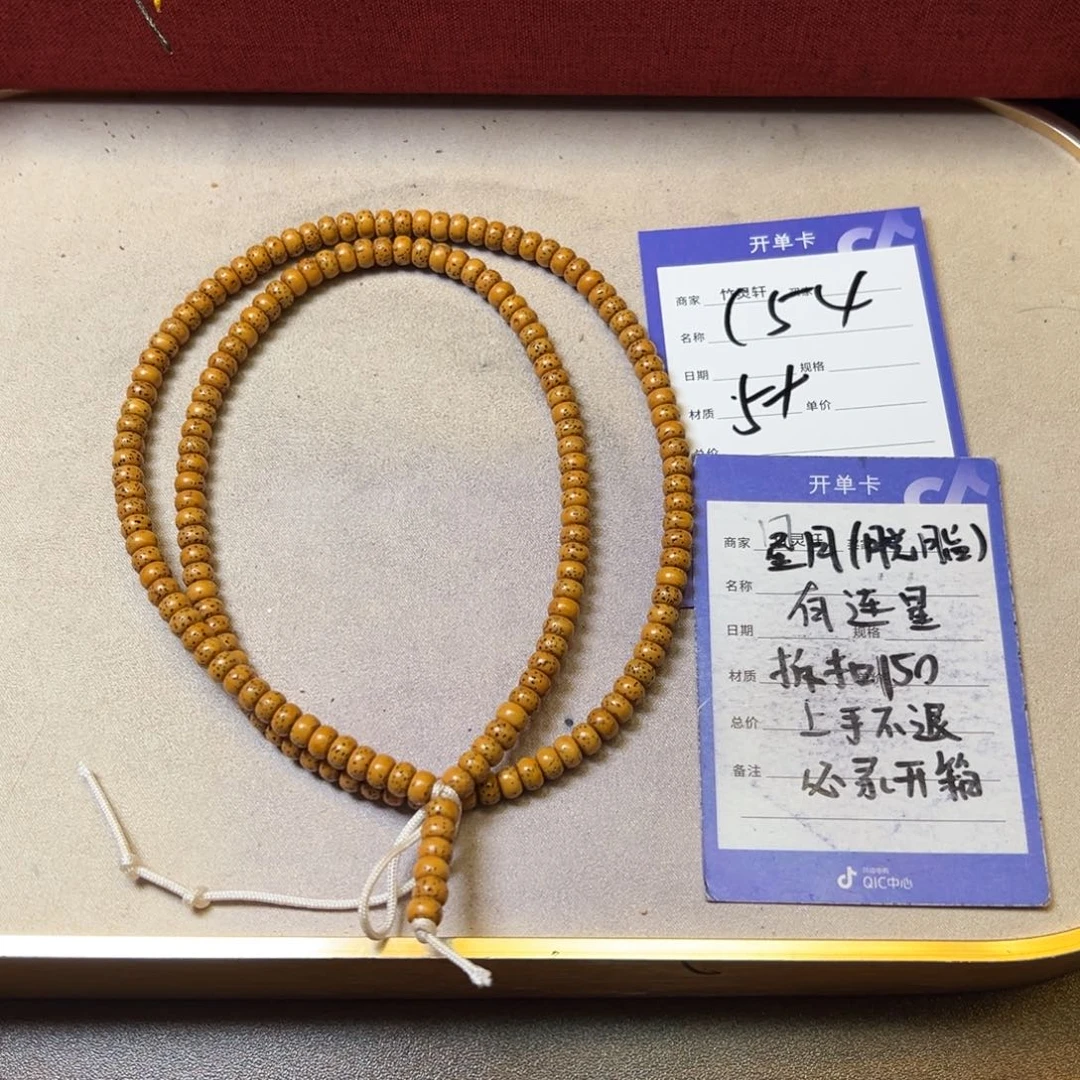 开单卡
商家 竹灵轩
154
名称
日期 规格
材质 5f 单价
总价
开单卡
商家 星月(脱脂)
名称 有连星
日期 规格
材质 拆扣150
总价 上手不退
备注 必录开箱
QIC中心